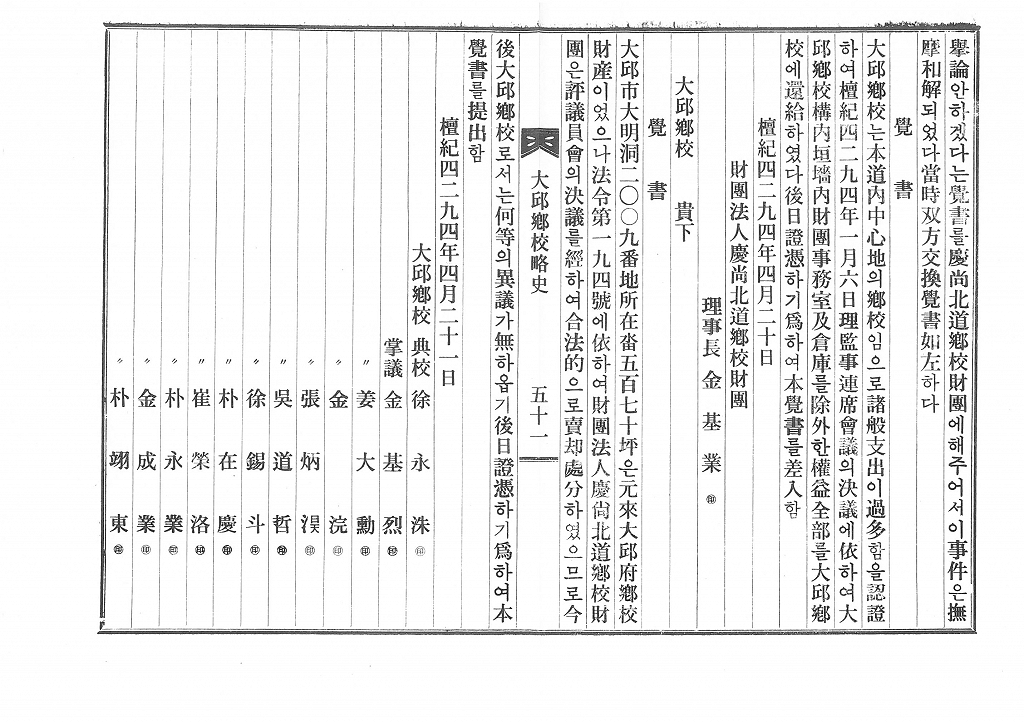 擧論안하겠다는覺書를慶尙北道鄕校財團에해주어서이事件은撫
摩和解되었다當時双方交換覺書如左하다
覺書
大邱鄕校는本道內中心地의鄕校임으로諸般支出이過多함을認證
하여檀紀四二九四年一月六日理監事連席會議의決議에依하여大
邱鄕校構內垣墻內財團事務室及倉庫를除外한權益全部를大邱鄕
校에還給하였다後日證憑하기爲하여本覺書를差入함
檀紀四二九四年四月二十日
財團法人慶尙北道鄕校財團
理事長 金基業 ㊞
大邱鄕校 貴下
覺書
大邱市大明洞二〇〇九番地所在畓五百七十坪은元來大邱府鄕校
財産이었으나法令第一九四號에依하여財團法人慶尙北道鄕校財
團은評議員會의決議를經하여合法的으로賣却處分하였으므로今
大邱鄕校略史
五十一
後大邱鄕校로서는何等의異議가無하옵기後日證憑하기爲하여本
覺書를提出함
檀紀四二九四年四月二十一日
大邱鄕校 典校 徐永洙 ㊞
掌議 金基烈 ㊞
〃 姜大勳 ㊞
〃 金浣 ㊞
〃 張炳淏 ㊞
〃 吳道哲 ㊞
〃 徐錫斗 ㊞
〃 朴在慶 ㊞
〃 崔榮洛 ㊞
〃 朴永業 ㊞
〃 金成業 ㊞
〃 朴翊東 ㊞